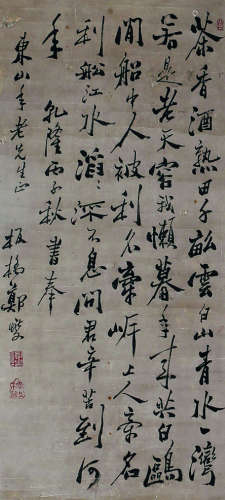 茶香酒熟田千畝雲白山青水一灣
若是老天容我懶暮年來共白鷗
閒船中人被利名牽岸上人牽名
利船江水滔滔流不息問君辛苦到何
年 乾隆丙子秋 書奉
東山年老先生正 板橋鄭燮